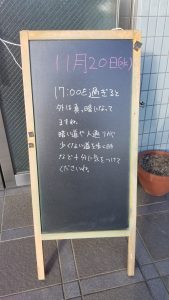 11月20日(水)
17:00を過ぎると
外は真っ暗になって
ますね。
暗い道や人通りが
少ない道を歩く時
など十分に気をつけて
くださいね。